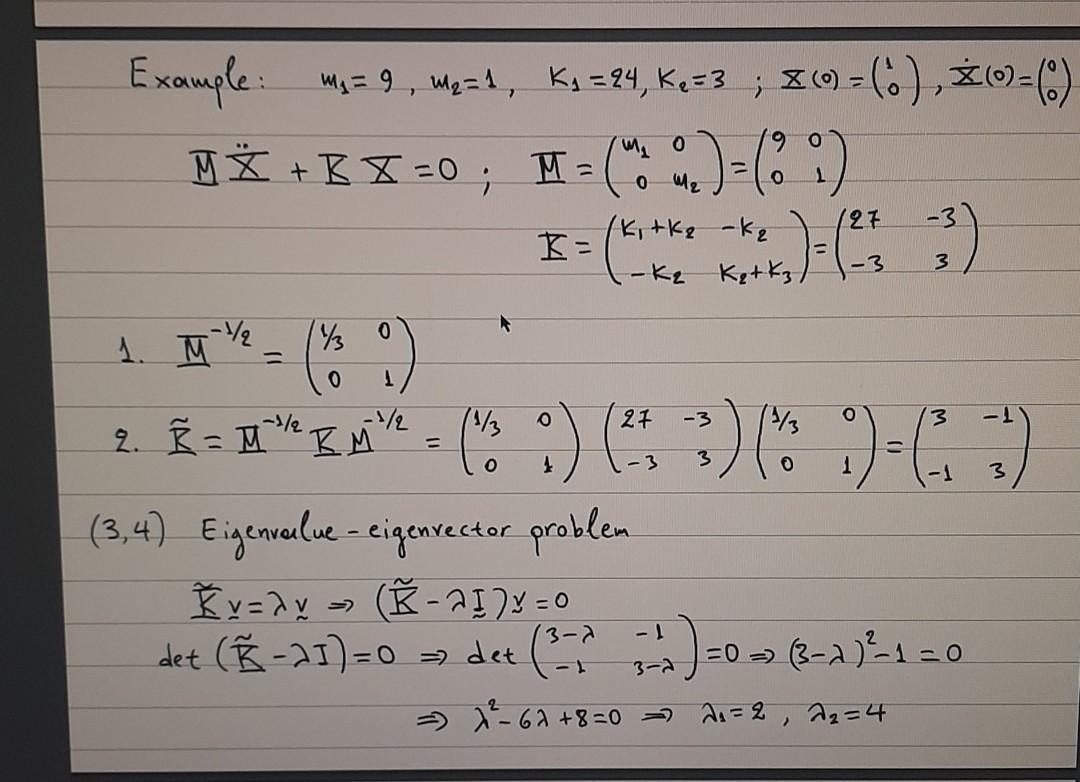 Example: m₁ = 9 , m₂ = 1 , K₁ = 24, K₂ = 3 ; X(0) = (1 0) , Ẋ(0) = (0 0)
M Ẍ + K X = 0 ; M = (m₁ 0 0 m₂) = (9 0 0 1)
K = (K₁+K₂ -K₂ -K₂ K₂+K₃) = (27 -3 -3 3)
1. M^(-1/2) = (1/3 0 0 1)
2. K̃ = M^(-1/2) K M^(-1/2) = (1/3 0 0 1) (27 -3 -3 3) (1/3 0 0 1) = (3 -1 -1 3)
(3,4) Eigenvalue - eigenvector problem
K̃ v = λ v ⇒ (K̃ - λI) v = 0
det (K̃ - λI) = 0 ⇒ det (3-λ -1 -1 3-λ) = 0 ⇒ (3-λ)² - 1 = 0
⇒ λ² - 6λ + 8 = 0 ⇒ λ₁ = 2 , λ₂ = 4